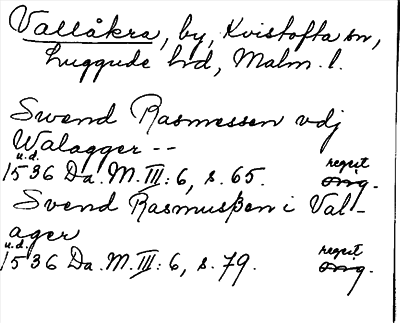 Vallåkra, by, Kvistofta sn,
Luggude hd, Malm. l.
Swend Rasmessen vdj
Walagger --
u.d. regist
1536 Da. M. III: 6, s. 65. orig.
Svend Rasmusßen i Val-
ager
u.d. regist
1536 Da. M. III: 6, s. 79. orig.